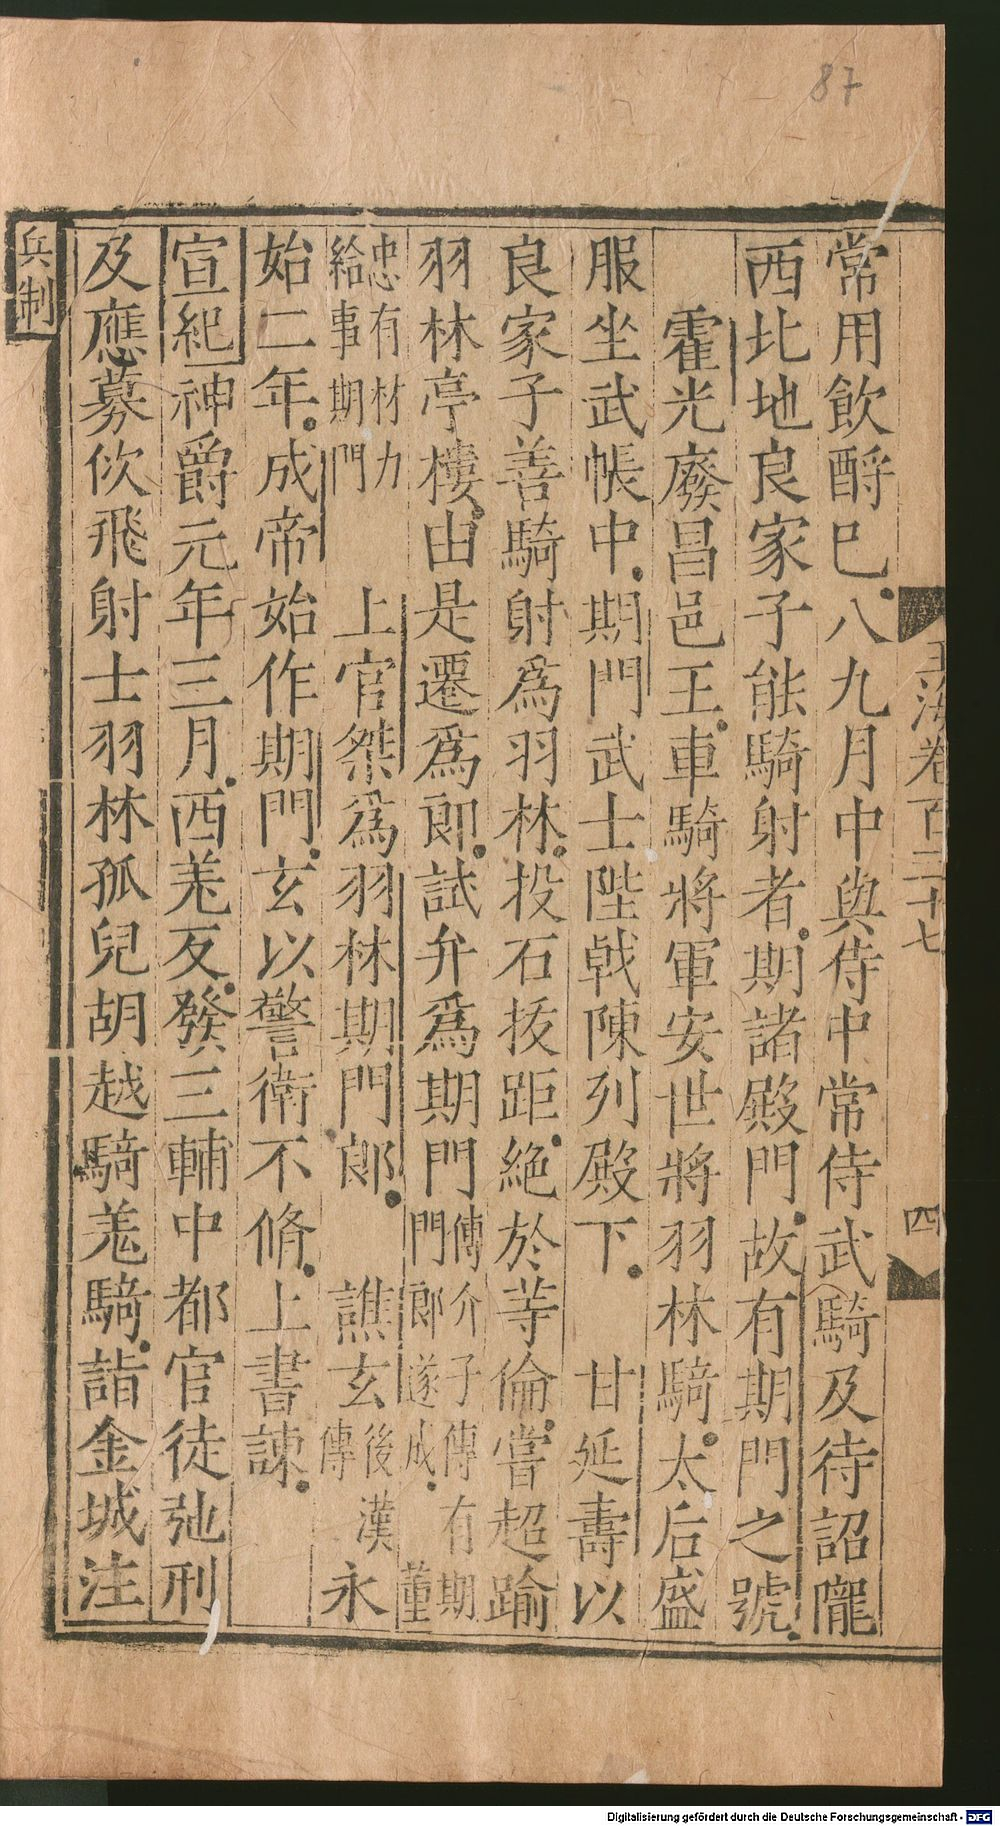 87
玉海卷百三十七
四
常用飲酎巳八九月中與侍中常侍武騎及待詔隴
西北地良家子能騎射者期諸殿門故有期門之號
霍光廢昌邑王車騎將軍安世將羽林騎太后盛
服坐武帳中期門武士陛戟陳列殿下 甘延壽以
良家子善騎射爲羽林投石拔距絶於等倫嘗超踰
羽林亭樓由是遷爲郎試弁爲期門傳介子傳有期門郎遂成董
忠有材力給事期門 上官桀爲羽林期門郎 譙玄後漢傳永
始二年成帝始作期門玄以警衛不脩上書諫
宣紀神爵元年三月西羌反發三輔中都官徒弛刑
及應募佽飛射士羽林孤兒胡越騎羌騎詣金城注
兵制
Digitalisierung gefördert durch die Deutsche Forschungsgemeinschaft - DFG